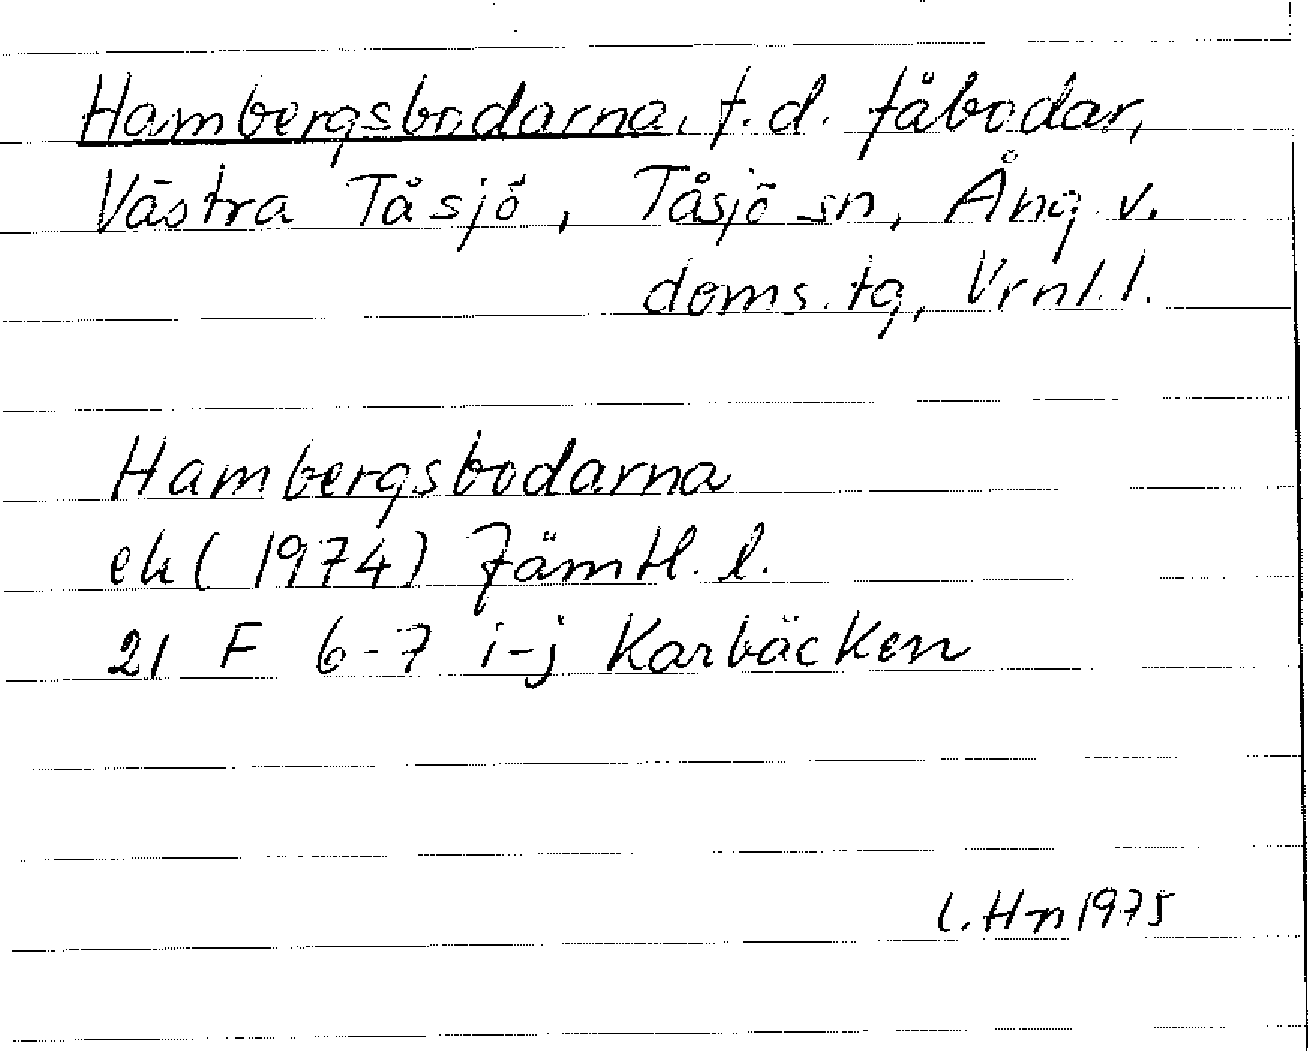 Hambergsbodarna, f.d. fåbodar,
Västra Tåsjö, Tåsjö sn, Ång. v.
doms. tg, Vrnl. l.
Hambergsbodarna
ek (1974) Jämtl. l.
21 F 6-7 i-j Karbäcken
C. Hn 1975